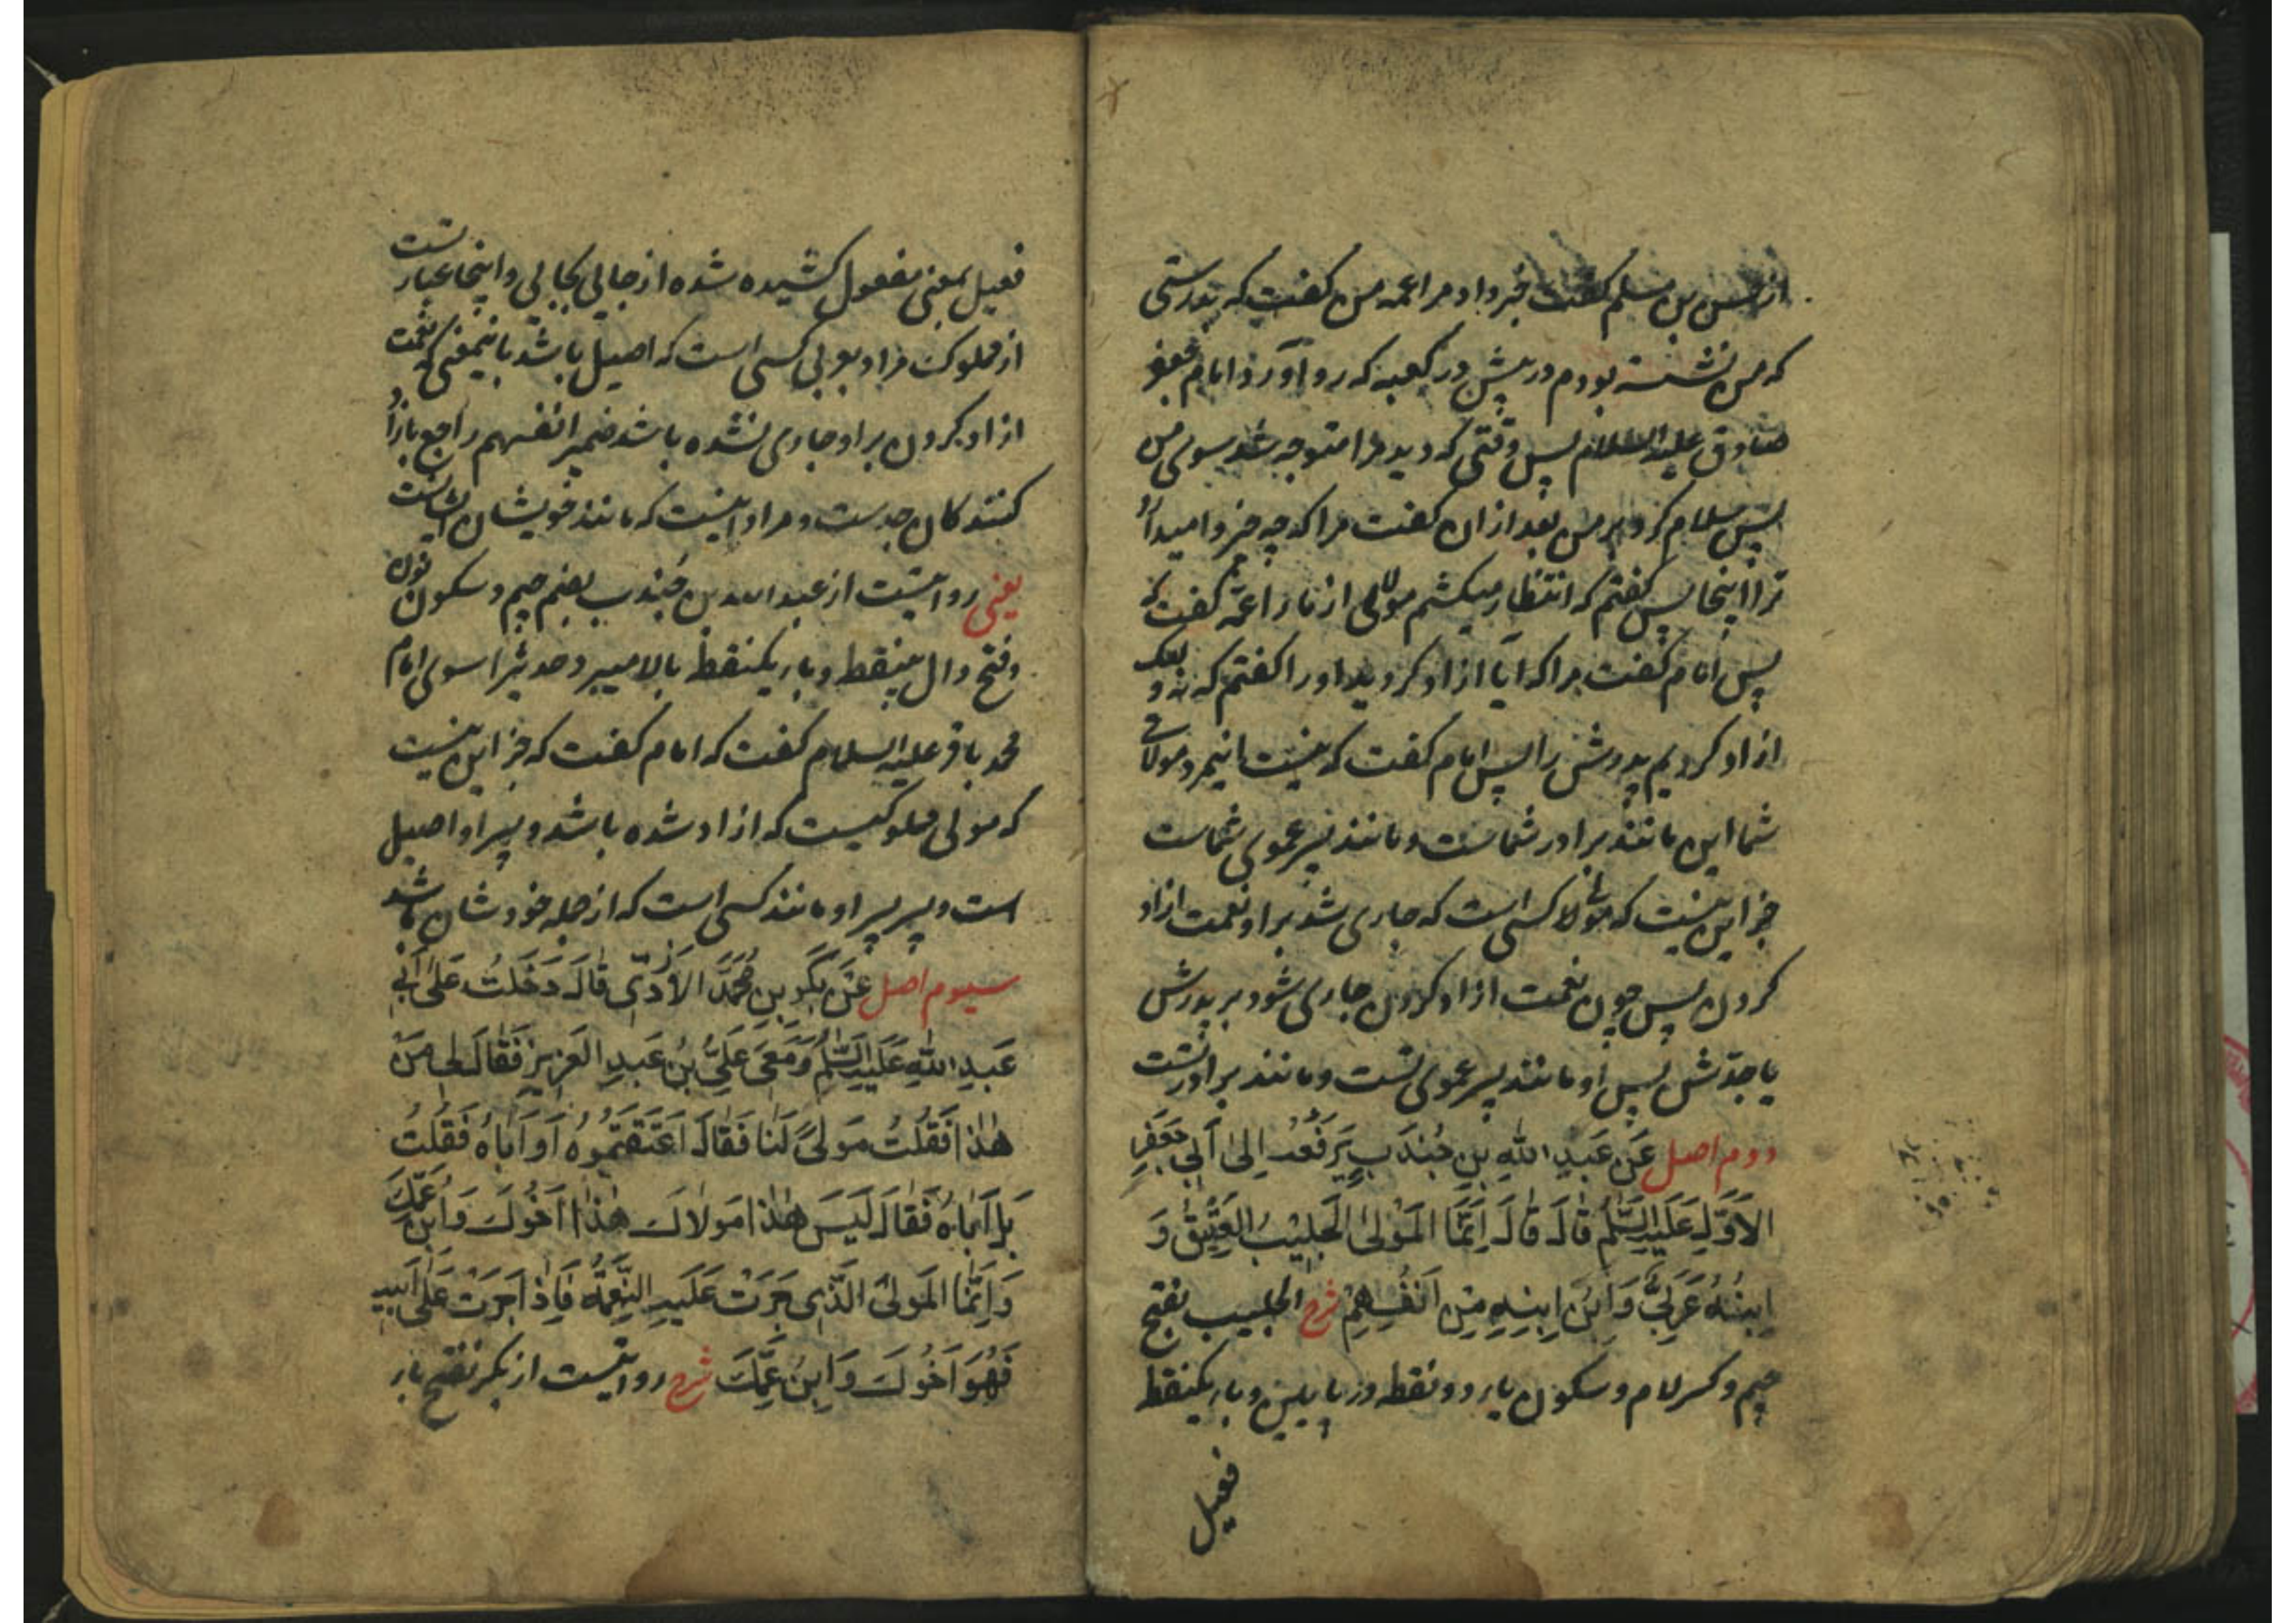 از حسن بن مسلم گفت خبر داد مرا عمه من گفت که بدرستی
که من نشسته بودم در پیش در کعبه که رو آورد امام جعفر
صادق علیه السلام پس وقتی که دید مرا متوجه شد بسوی من
پس سلام کرد بر من بعد از ان گفت مرا که چه چیز وامیدارد
ترا اینجا پس گفتم که انتظار میکشم مولائی از ما را عمه گفت که
پس امام گفت مرا که آیا ازاد کردید او را گفتم که نه و لیک
ازاد کردیم پدرش را پس امام گفت که نیست اینمرد مولای
شما این مانند برادر شماست و مانند پسر عموی شماست
جز این نیست که مولا کسی است که جاری شد بر او نعمت ازاد
کردن پس چون نعمت ازاد کردن جاری شود بر پدرش
یا جدش پس او مانند پسر عموی تست و مانند برادر تست
دوم اصل عَن عَبدِ اللهِ بنِ جُندَبٍ یَرفَعُه اِلی اَبی جَعفَرِ
الاَوَّلِ عَلَیهِ السَّلامُ قالَ قالَ اِنَّمَا المَولی الجَلیبُ العَتیقُ وَ
اِبنُهُ عَرَبیٌّ وَابنُ اِبنِهِ مِن اَنفُسِهِم شرح الجلیب بفتح
جیم و کسر لام و سکون یاء دو نقطه در پایین و باء یکنقط
فعیل
فعیل بمعنی مفعول کشیده شده از جایی بجایی و اینجا عبارتست
از مملوک مراد بعربی کسی است که اصیل باشد باینمعنی که نعمت
ازاد کردن بر او جاری نشده باشد ضمیر انفسهم راجع بازاد
کنندکان جدست و مراد اینست که مانند خویشان ایشانست
یعنی روایتست از عبد الله بن جندب بضم جیم و سکون نون
وفتح دال بینقط و باء یکنقط بالا میبرد حدیث را سوی امام
محمد باقر علیه السلام گفت که امام گفت که جز این نیست
که مولی مملوکیست که ازاد شده باشد و پسر او اصیل
است و پسر پسر او مانند کسی است که از جمله خودشان باشد
سیوم اصل عَن بَکرِ بنِ مُحَمَّدٍ الاَزدِیّ قالَ دَخَلتُ عَلی اَبی
عَبدِ اللهِ عَلَیهِ السَّلامُ وَمَعی عَلیُّ بنُ عَبدِ العَزیزِ فَقالَ لی مَن
هٰذا فَقُلتُ مَولیً لَنا فَقالَ اَعتَقتُمُوهُ اَو اَباهُ فَقُلتُ
بَل اَباهُ فَقالَ لَیسَ هٰذا مَولاکَ هٰذا اَخُوکَ وَابنُ عَمِّکَ
وَاِنَّمَا المَولی الَّذی جَرَت عَلَیهِ النِّعمَةُ فَاِذا جَرَت عَلی اَبیهِ
فَهُوَ اَخُوکَ وَابنُ عَمِّکَ شرح روایتست از بکر بفتح باء